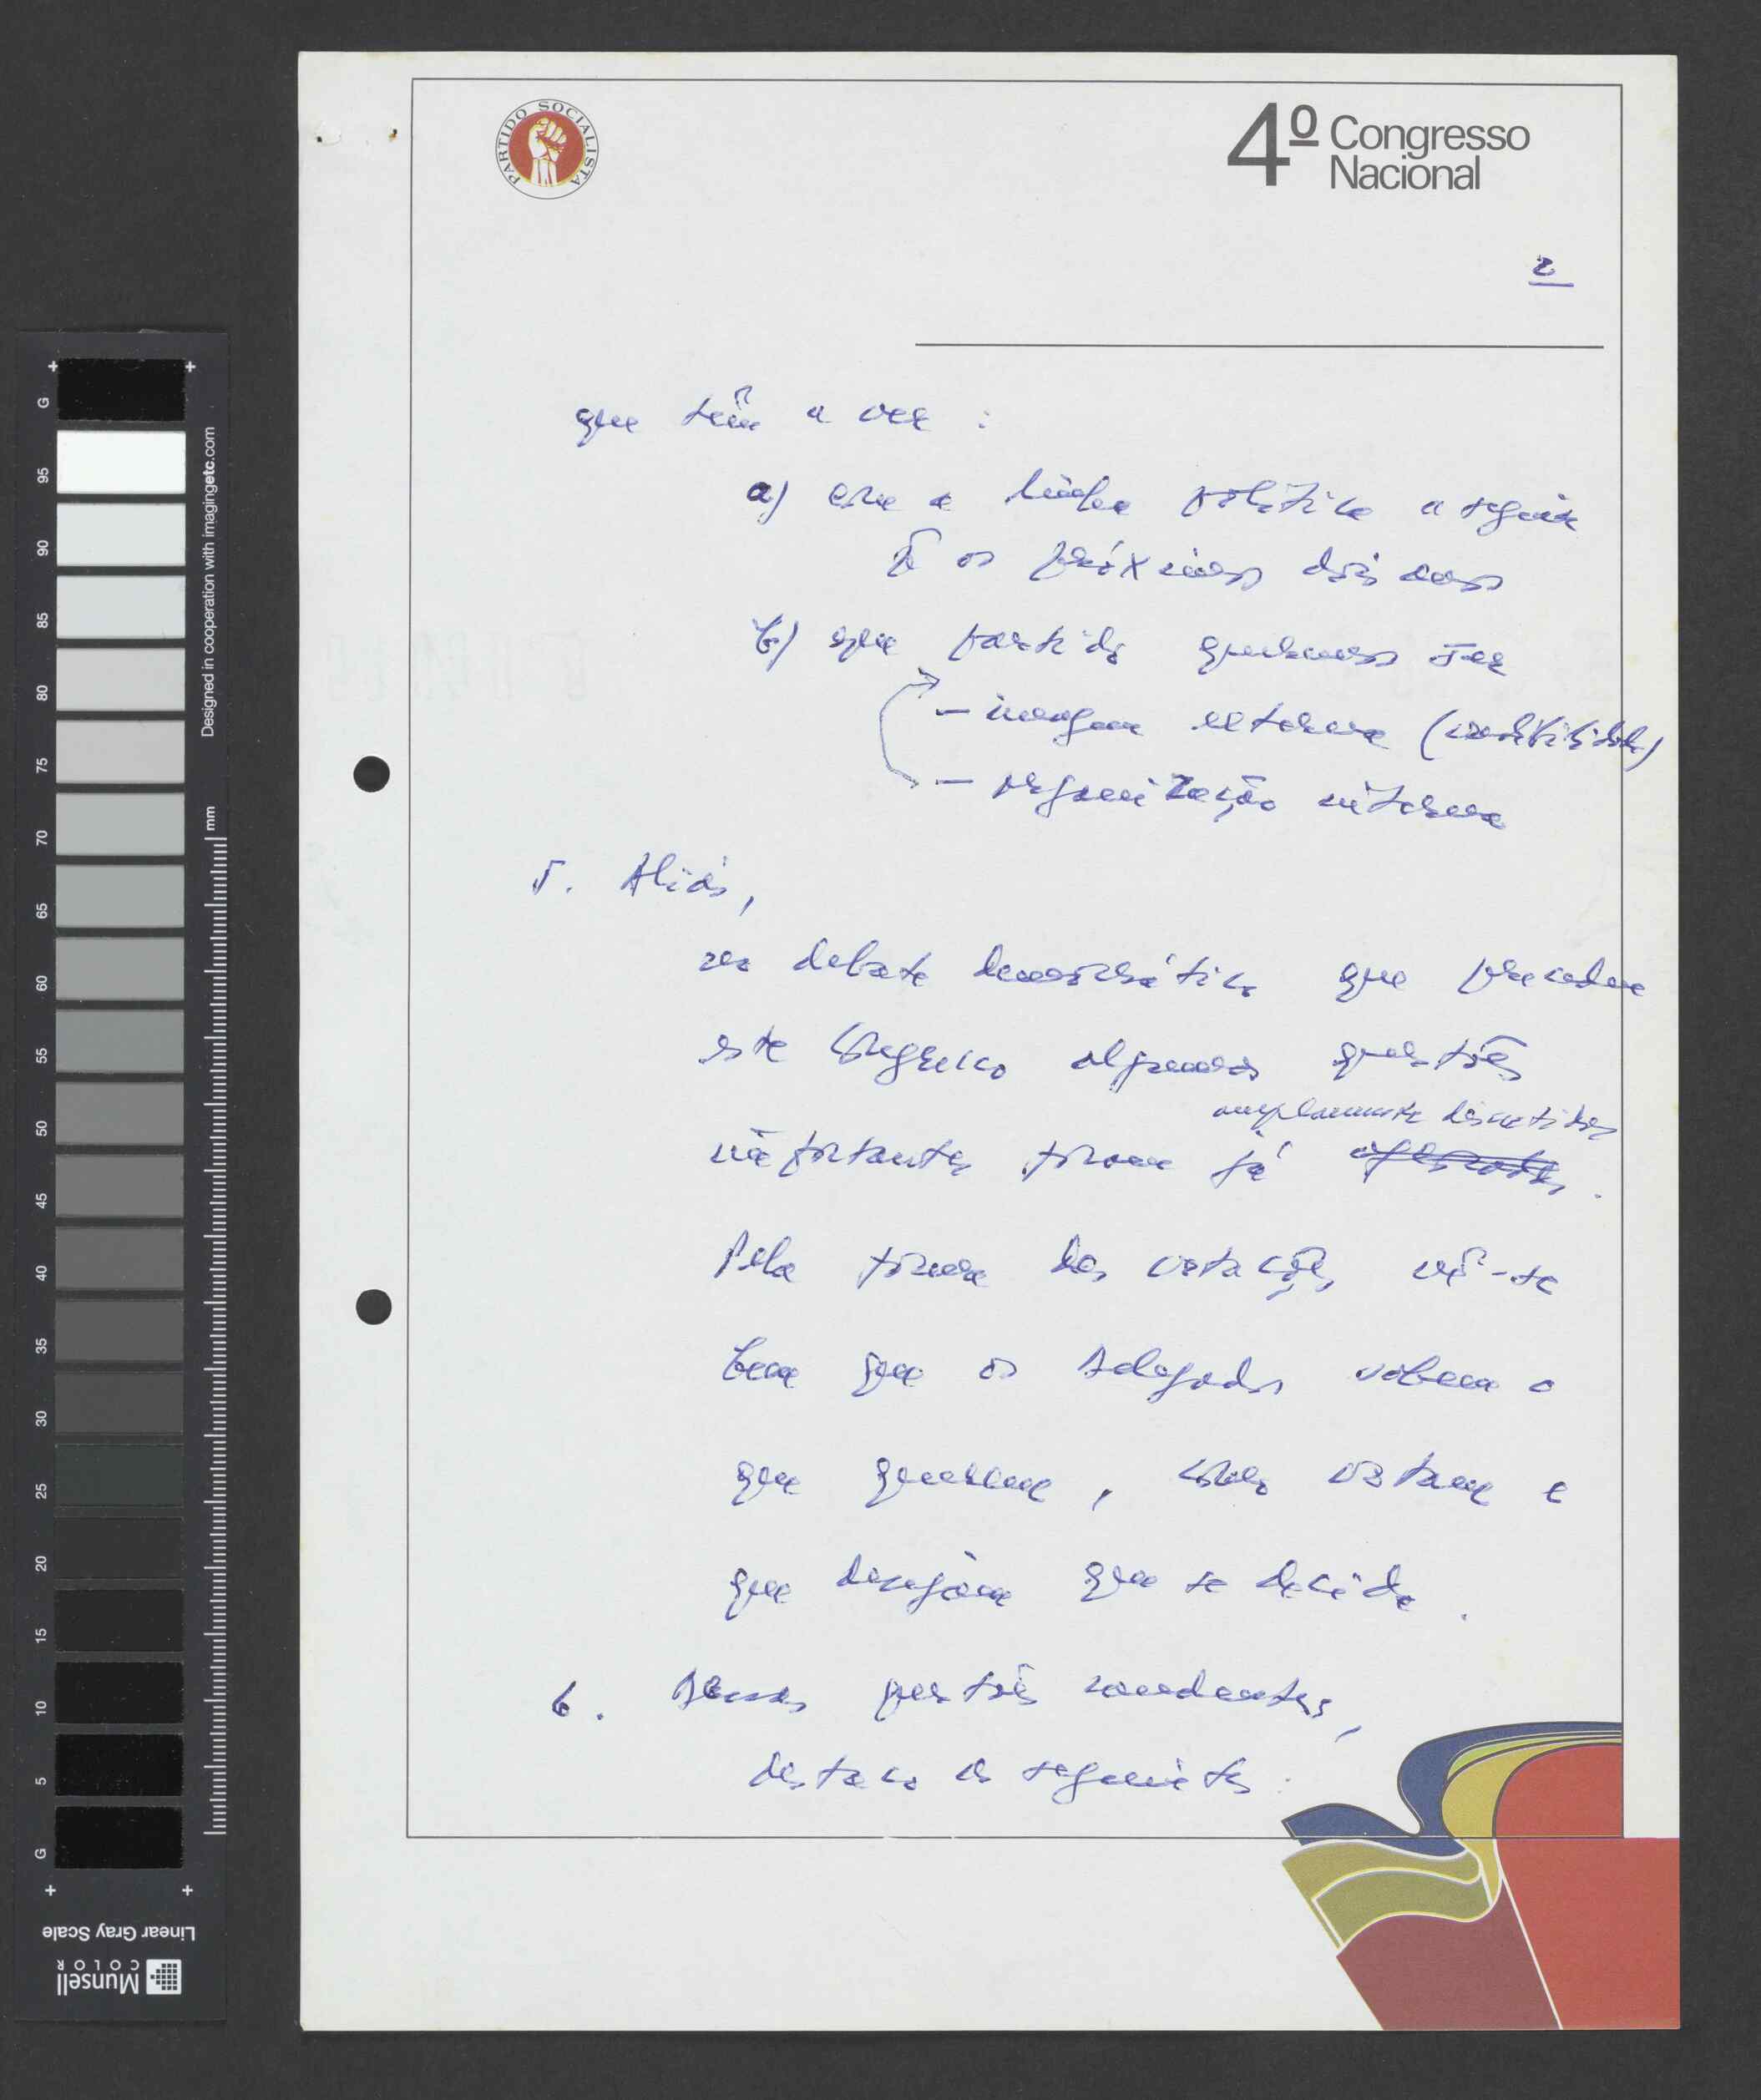 PARTIDO SOCIALISTA
4º Congresso
Nacional
2
que têm a ver :
a) com a linha política a seguir
p^a os próximos dois anos
b) que partido queremos ser
– imagem externa (credibilidade)
– organização interna
5. Aliás,
no debate democrático que precedeu
este Congresso algumas questões
amplamente discutidas
importantes foram já .
Pela forma das votações, vê-se
bem que os delegados sabem o
que querem, como votam e
que desejam que se decida.
6. Dessas questões candentes,
destaco as seguintes :
G
95
90
85
80
75
70
65
60
55
50
45
40
35
30
25
20
15
10
5
G
Designed in cooperation with imagingetc.com
mm
Linear Gray Scale
Munsell
COLOR